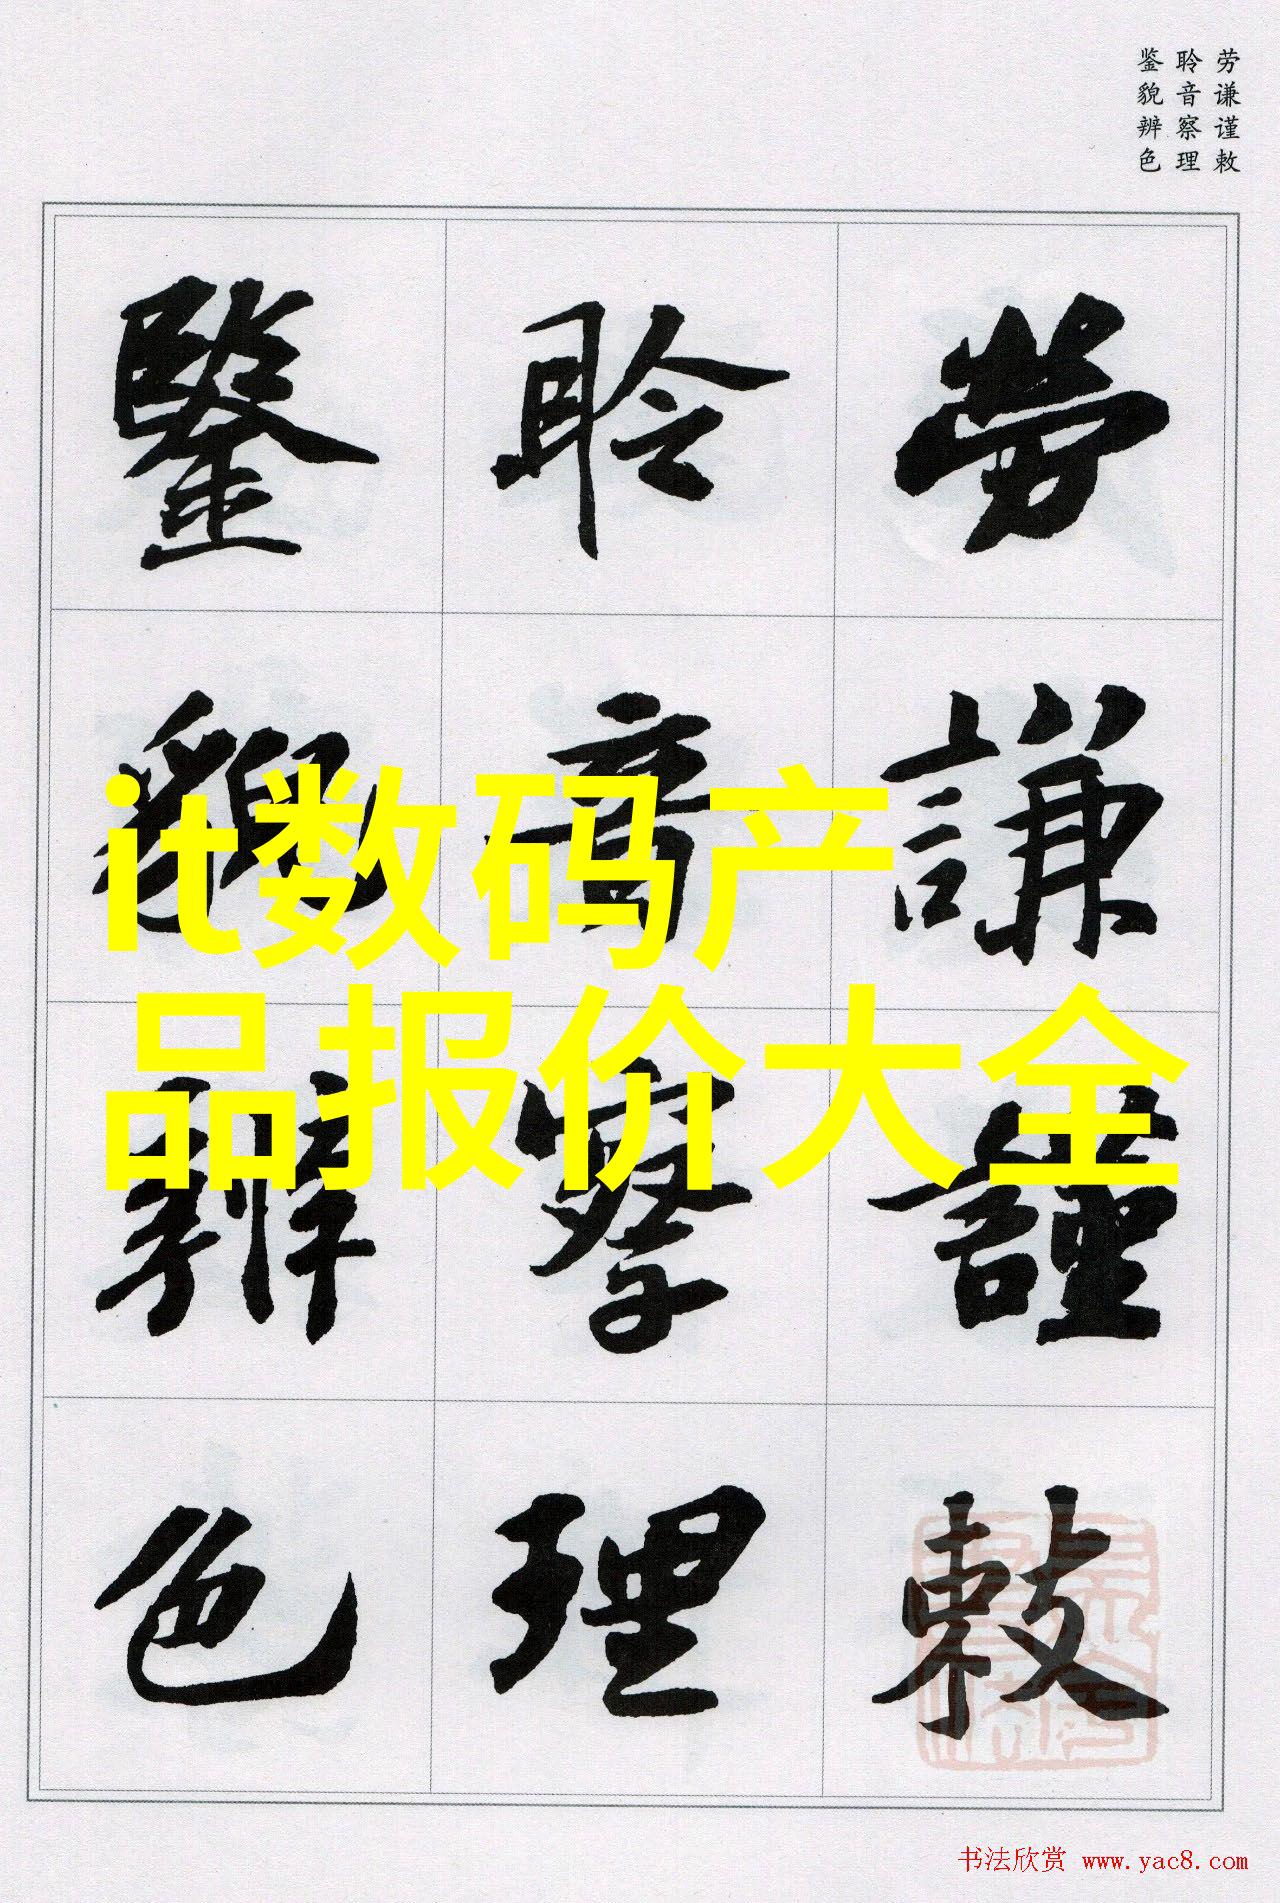 劳谦谨敕
聆音察理
鉴貌辨色
勞謙謹敕
聆音察理
鑒貌辨色
it数码产
品报价大全
书法欣赏 www.yac8.com